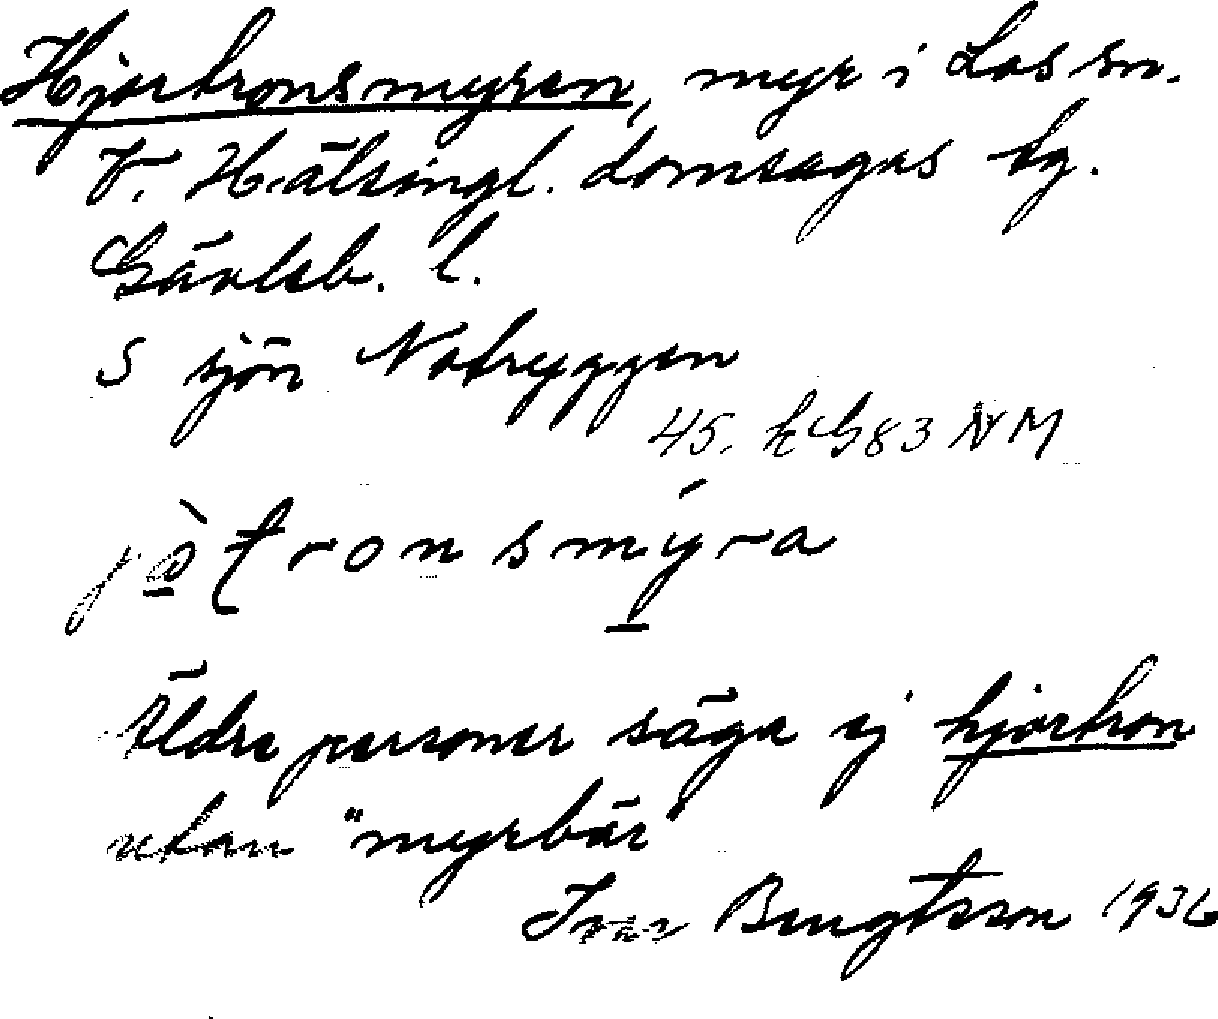 Hjortronsmyren, myr i Los sn.
V. Hälsingl. domsagas tg.
Gävleb. l.
S sjön Notryggen
45. EG83 NM
jò̱tronsmý̱ra
Äldre personer säga ej hjortron
utan "myrbär"
Ivar Bengtsson 1936